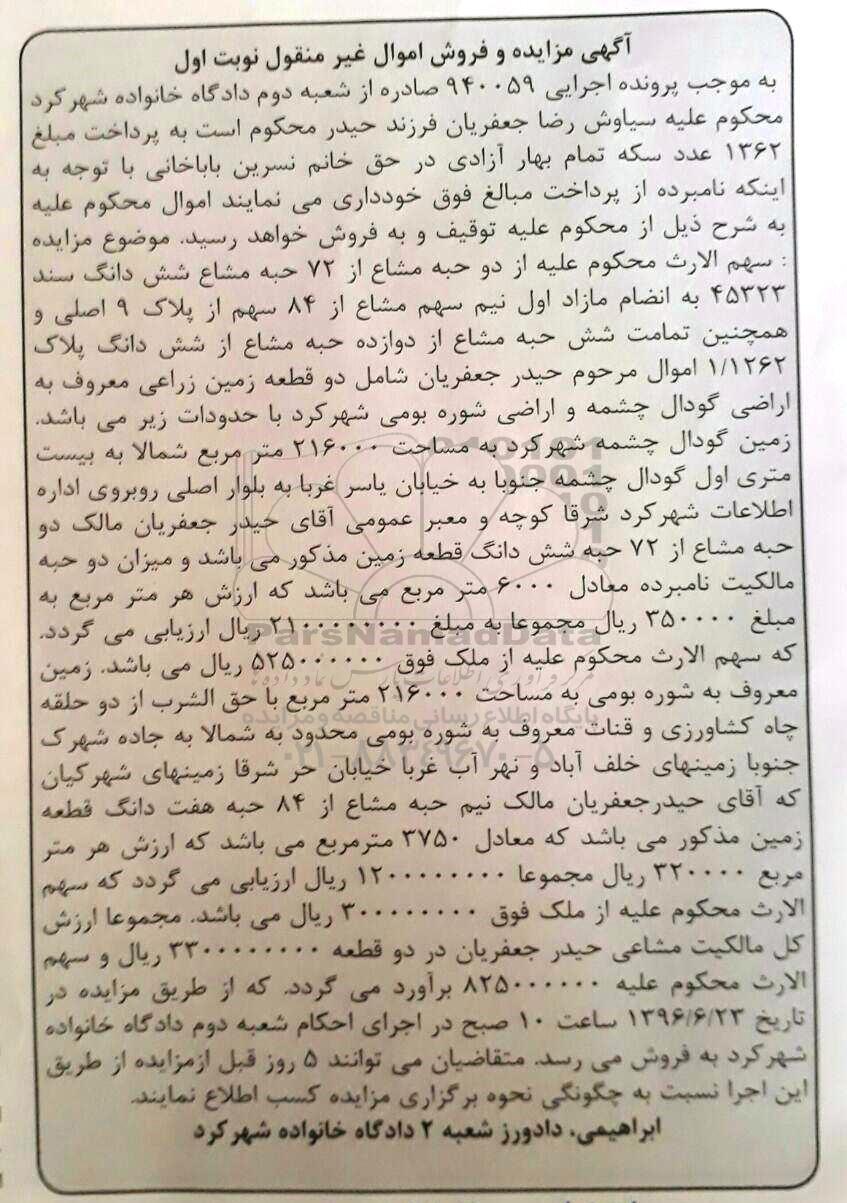 آگهی مزایده و فروش اموال غیر منقول نوبت اول
به موجب پرونده اجرایی ۹۴۰۰۵۹ صادره از شعبه دوم دادگاه خانواده شهرکرد
محکوم علیه سیاوش رضا جعفریان فرزند حیدر محکوم است به پرداخت مبلغ
۱۳۶۲ عدد سکه تمام بهار آزادی در حق خانم نسرین باباخانی با توجه به
اینکه نامبرده از پرداخت مبالغ فوق خودداری می نمایند اموال محکوم علیه
به شرح ذیل از محکوم علیه توقیف و به فروش خواهد رسید. موضوع مزایده
: سهم الارث محکوم علیه از دو حبه مشاع از ۷۲ حبه مشاع شش دانگ سند
۴۵۳۲۳ به انضام مازاد اول نیم سهم مشاع از ۸۴ سهم از پلاک ۹ اصلی و
همچنین تمامت شش حبه مشاع از دوازده حبه مشاع از شش دانگ پلاک
۱/۱۲۶۲ اموال مرحوم حیدر جعفریان شامل دو قطعه زمین زراعی معروف به
اراضی گودال چشمه و اراضی شوره بومی شهرکرد با حدودات زیر می باشد.
زمین گودال چشمه شهرکرد به مساحت ۲۱۶۰۰۰ متر مربع شمالا به بیست
متری اول گودال چشمه جنوبا به خیابان یاسر غربا به بلوار اصلی روبروی اداره
اطلاعات شهرکرد شرقا کوچه و معبر عمومی آقای حیدر جعفریان مالک دو
حبه مشاع از ۷۲ حبه شش دانگ قطعه زمین مذکور می باشد و میزان دو حبه
مالکیت نامبرده معادل ۶۰۰۰ متر مربع می باشد که ارزش هر متر مربع به
مبلغ ۳۵۰۰۰۰ ریال مجموعا به مبلغ ۲۱۰۰۰۰۰۰۰۰ ریال ارزیابی می گردد.
که سهم الارث محکوم علیه از ملک فوق ۵۲۵۰۰۰۰۰۰ ریال می باشد. زمین
معروف به شوره بومی به مساحت ۲۱۶۰۰۰ متر مربع با حق الشرب از دو حلقه
چاه کشاورزی و قنات معروف به شوره بومی محدود به شمالا به جاده شهرک
جنوبا زمینهای خلف آباد و نهر آب غربا خیابان حر شرقا زمینهای شهرکیان
که آقای حیدرجعفریان مالک نیم حبه مشاع از ۸۴ حبه هفت دانگ قطعه
زمین مذکور می باشد که معادل ۳۷۵۰ مترمربع می باشد که ارزش هر متر
مربع ۳۲۰۰۰۰ ریال مجموعا ۱۲۰۰۰۰۰۰۰۰ ریال ارزیابی می گردد که سهم
الارث محکوم علیه از ملک فوق ۳۰۰۰۰۰۰۰۰ ریال می باشد. مجموعا ارزش
کل مالکیت مشاعی حیدر جعفریان در دو قطعه ۳۳۰۰۰۰۰۰۰۰ ریال و سهم
الارث محکوم علیه ۸۲۵۰۰۰۰۰۰ برآورد می گردد. که از طریق مزایده در
تاریخ ۱۳۹۶/۶/۲۳ ساعت ۱۰ صبح در اجرای احکام شعبه دوم دادگاه خانواده
شهرکرد به فروش می رسد. متقاضیان می توانند ۵ روز قبل ازمزایده از طریق
این اجرا نسبت به چگونگی نحوه برگزاری مزایده کسب اطلاع نمایند.
ابراهیمی. دادورز شعبه ۲ دادگاه خانواده شهرکرد
ParsNamadData
پایگاه اطلاع رسانی مناقصه و مزایده